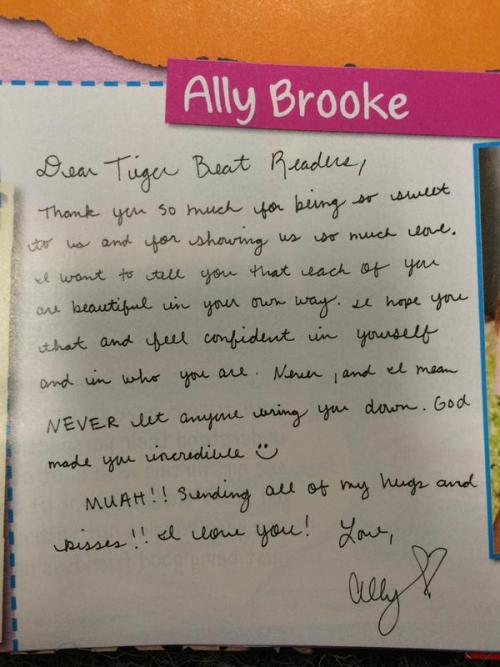 Ally Brooke
Dear Tiger Beat Readers,
Thank you so much for being so sweet
to us and for showing us so much love.
I want to tell you that each of you
are beautiful in your own way. I hope you
that and feel confident in yourself
and in who you are. Never, and I mean
NEVER let anyone bring you down. God
made you incredible
MUAH!! Sending all of my hugs and
kisses!! I love you! Love,
Ally